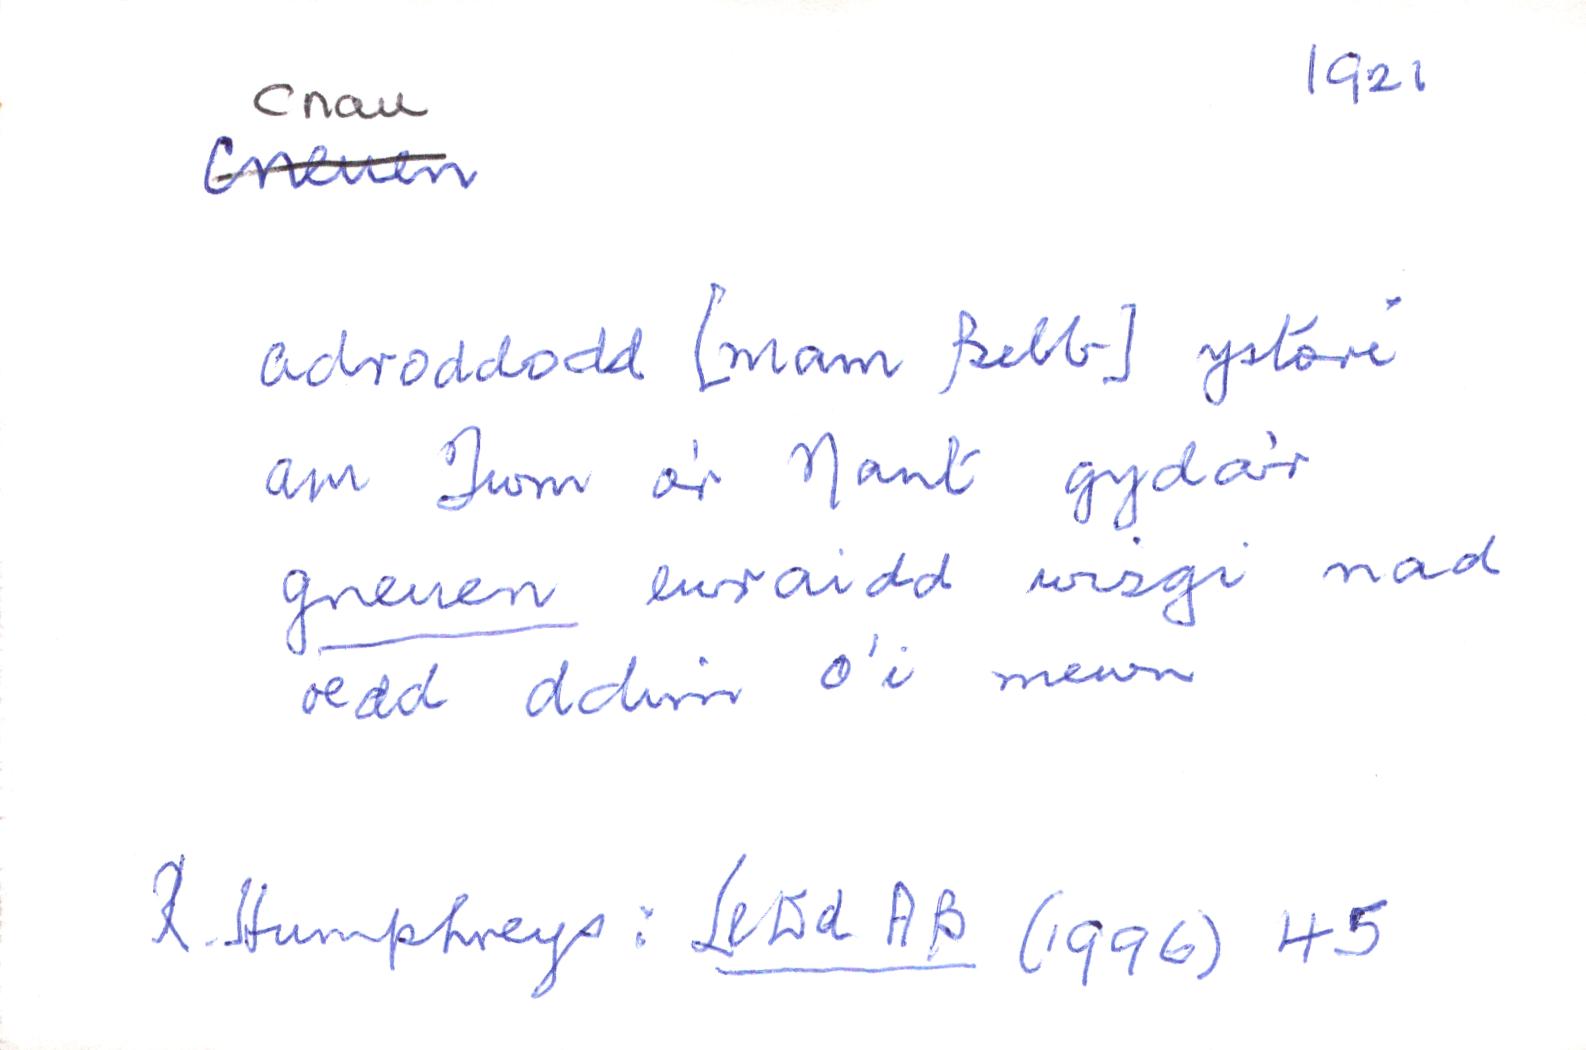 1921
cnau
Cneuen
adroddodd [mam Bebb] ystori
am Twm o'r Nant gyda'r
gneuen euraidd wisgi nad
oedd ddim o'i mewn
R. Humphreys: Ll AB (1996) 45